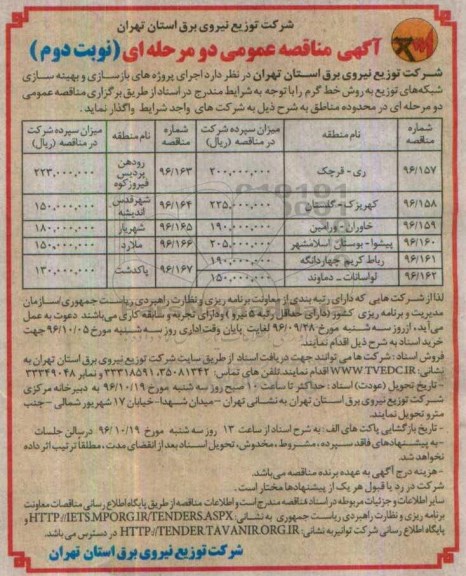 شرکت توزیع نیروی برق استان تهران
آگهی مناقصه عمومی دو مرحله ای (نوبت دوم)
شرکت توزیع نیروی برق استان تهران در نظر دارد اجرای پروژه های بازسازی و بهینه سازی
شبکه‌های توزیع به روش خط گرم را با توجه به شرایط مندرج در اسناد از طریق برگزاری مناقصه عمومی
دو مرحله ای در محدوده مناطق به شرح ذیل به شرکت های واجد شرایط واگذار نماید.
شماره مناقصه نام منطقه میزان سپرده شرکت در مناقصه (ریال) شماره مناقصه نام منطقه میزان سپرده شرکت در مناقصه (ریال)
۹۶/۱۵۷ ری - قرچک ۲۰۰,۰۰۰,۰۰۰ ۹۶/۱۶۳ رودهن پردیس فیروزکوه ۲۲۳,۰۰۰,۰۰۰
۹۶/۱۵۸ کهریزک - گلستان ۲۲۵,۰۰۰,۰۰۰ ۹۶/۱۶۴ شهرقدس اندیشه ۱۵۰,۰۰۰,۰۰۰
۹۶/۱۵۹ خاوران - ورامین ۱۹۰,۰۰۰,۰۰۰ ۹۶/۱۶۵ شهریار ۱۸۰,۰۰۰,۰۰۰
۹۶/۱۶۰ پیشوا - بوستان اسلامشهر ۲۰۵,۰۰۰,۰۰۰ ۹۶/۱۶۶ ملارد ۱۵۰,۰۰۰,۰۰۰
۹۶/۱۶۱ رباط کریم چهاردانگه ۱۹۰,۰۰۰,۰۰۰ ۹۶/۱۶۷ پاکدشت ۱۳۰,۰۰۰,۰۰۰
۹۶/۱۶۲ لواسانات - دماوند ۱۵۰,۰۰۰,۰۰۰
لذا از شرکت هایی که دارای رتبه بندی از معاونت برنامه ریزی و نظارت راهبردی ریاست جمهوری/سازمان
مدیریت و برنامه ریزی کشور (دارای حداقل رتبه ۵ نیرو) و دارای تجربه و سابقه کاری می‌باشند دعوت به عمل
می آید، از روز سه شنبه مورخ ۹۶/۰۹/۲۸ لغایت پایان وقت اداری روز سه شنبه مورخ ۹۶/۱۰/۰۵ جهت
خرید اسناد به شرح ذیل اقدام نمایند.
فروش اسناد: شرکت ها می توانند جهت دریافت اسناد از طریق سایت شرکت توزیع نیروی برق استان تهران به
نشانی: WWW.TVEDC.IR اقدام نمایند.تلفن های تماس: ۳۵۰۸۱۳۴۲، ۳۳۳۱۸۵۹۱ و نمابر ۳۳۳۴۹۰۴۸
- تاریخ تحویل (عودت) اسناد: حداکثر تا ساعت ۱۰ صبح روز سه شنبه مورخ ۹۶/۱۰/۱۹ به دبیرخانه مرکزی
شرکت توزیع نیروی برق استان تهران به نشانی تهران - میدان شهدا - خیابان ۱۷ شهریور شمالی - جنب
مترو تحویل نمایند.
- تاریخ بازگشایی پاکت های الف: به شرح اسناد از ساعت ۱۳ روز سه شنبه مورخ ۹۶/۱۰/۱۹ در سالن جلسات
- به پیشنهادهای فاقد سپرده، مشروط، مخدوش، تحویل اسناد بعد از انقضای مدت، مطلقا ترتیب اثر داده
نخواهد شد.
- هزینه درج آگهی به عهده برنده مناقصه می‌باشد.
شرکت در رد یا قبول هر یک از پیشنهادها مختار است.
سایر اطلاعات و جزئیات مربوطه در اسناد مناقصه مندرج است و اطلاعات مناقصه از طریق پایگاه اطلاع رسانی مناقصات معاونت
برنامه ریزی و نظارت راهبردی ریاست جمهوری به نشانی: HTTP://IETS.MPORG.IR/TENDERS.ASPX و
پایگاه اطلاع رسانی شرکت توانیر به نشانی: HTTP://TENDER.TAVANIR.ORG.IR در دسترس می باشد.
شرکت توزیع نیروی برق استان تهران